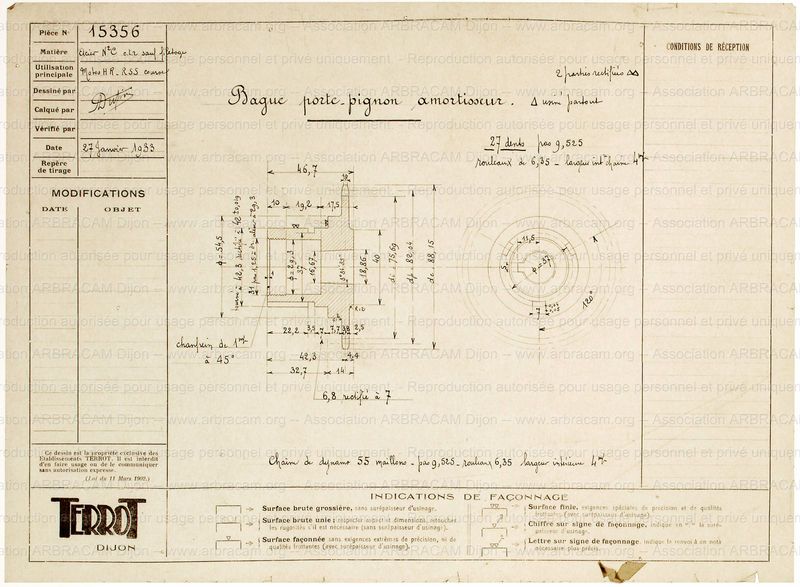 Pièce N° 15356
Matière Acier N°C
Utilisation principale Motos HR. RSS course
Dessiné par
Calqué par
Vérifié par
Date 27 Janvier 1933
Repère de tirage
MODIFICATIONS
DATE OBJET
Bague porte-pignon amortisseur.
2 parties rectifiés
usin partout
27 dents pas 9,525
rouleaux de 6,35 - largeur int chaine 4
CONDITIONS DE RÉCEPTION
46,7
10 19,2 17,5
φ=54,5
φ=29,3
37
16,67
18,86
40
di=75,69
dp=82,04
de=88,15
22,2 3,5 7 7,7 3,8 2,5
42,3 4,4
32,7 14
chanfrein de 1
à 45°
6,8 rectifié à 7
11,5
φ=37
5
7
120°
Chaine de dynamo 55 maillons - pas 9,525 - rouleaux 6,35 largeur intérieure 4
Ce dessin est la propriété exclusive des
Etablissements TERROT. Il est interdit
d'en faire usage ou de le communiquer
sans autorisation expresse.
(Loi du 11 Mars 1902.)
TERROT
DIJON
INDICATIONS DE FAÇONNAGE
Surface brute grossière, sans surépaisseur d'usinage.
Surface brute unie; respecter aspect et dimensions, retoucher
les rugosités s'il est nécessaire (sans surépaisseur d'usinage).
Surface façonnée sans exigences extrêmes de précision, ni de
qualités frottantes (avec surépaisseur d'usinage).
Surface finie, exigences spéciales de précision et de qualités
frottantes (avec surépaisseur d'usinage).
Chiffre sur signe de façonnage, indique en
d'usinage.
Lettre sur signe de façonnage, indique le renvoi à en nota
nécessaire plus précis.
Reproduction autorisée pour usage personnel et privé uniquement - Association ARBRACAM Dijon – www.arbracam.org